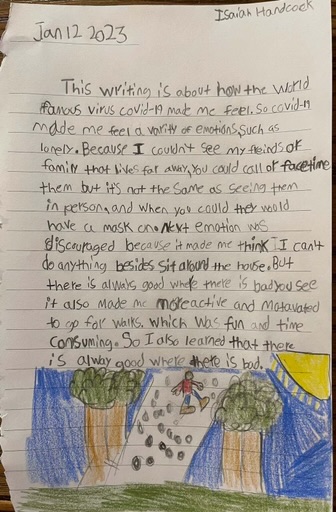 Isaiah Handcock
Jan 12 2023
This writing is about how the world
famous virus covid-19 made me feel. So covid-19
made me feel a varity of emotions, such as
lonely. Because I couldn't see my freinds or
family that lives far away, you could call or facetime
them but it's not the same as seeing them
in person, and when you could they would
have a mask on. Next emotion was
discouraged because it made me think I can't
do anything besides sit around the house. But
there is always good where there is bad you see
it also made me more active and motavated
to go for walks. which was fun and time
consuming. So I also learned that there
is alway good where there is bad.